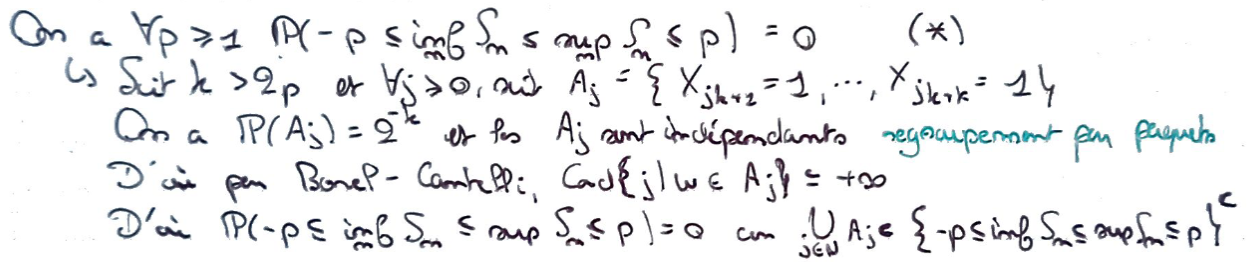 On a ∀p ≥ 1 ℙ(-p ≤ inf_n S_n ≤ sup_n S_n ≤ p) = 0 (*)
↳ Soit k > 2p et ∀j ≥ 0, soit A_j = { X_{jk+1} = 1, ..., X_{jk+k} = 1 }
On a ℙ(A_j) = 2^{-k} et les A_j sont indépendants regroupement par paquets
D'où par Borel-Cantelli, Card{j | ω ∈ A_j} = +∞
D'où ℙ(-p ≤ inf_n S_n ≤ sup S_n ≤ p) = 0 car ⋃_{j∈ℕ} A_j ⊂ {-p ≤ inf S_n ≤ sup S_n ≤ p}^c